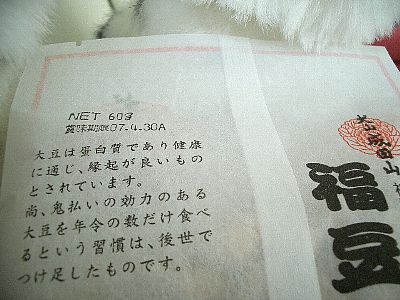 NET 60g
賞味期限07.4.30A
大豆は蛋白質であり健康
に通じ、縁起が良いもの
とされています。
尚、鬼払いの効力のある
大豆を年令の数だけ食べ
るという習慣は、後世で
つけ足したものです。
犬山成田山
福豆